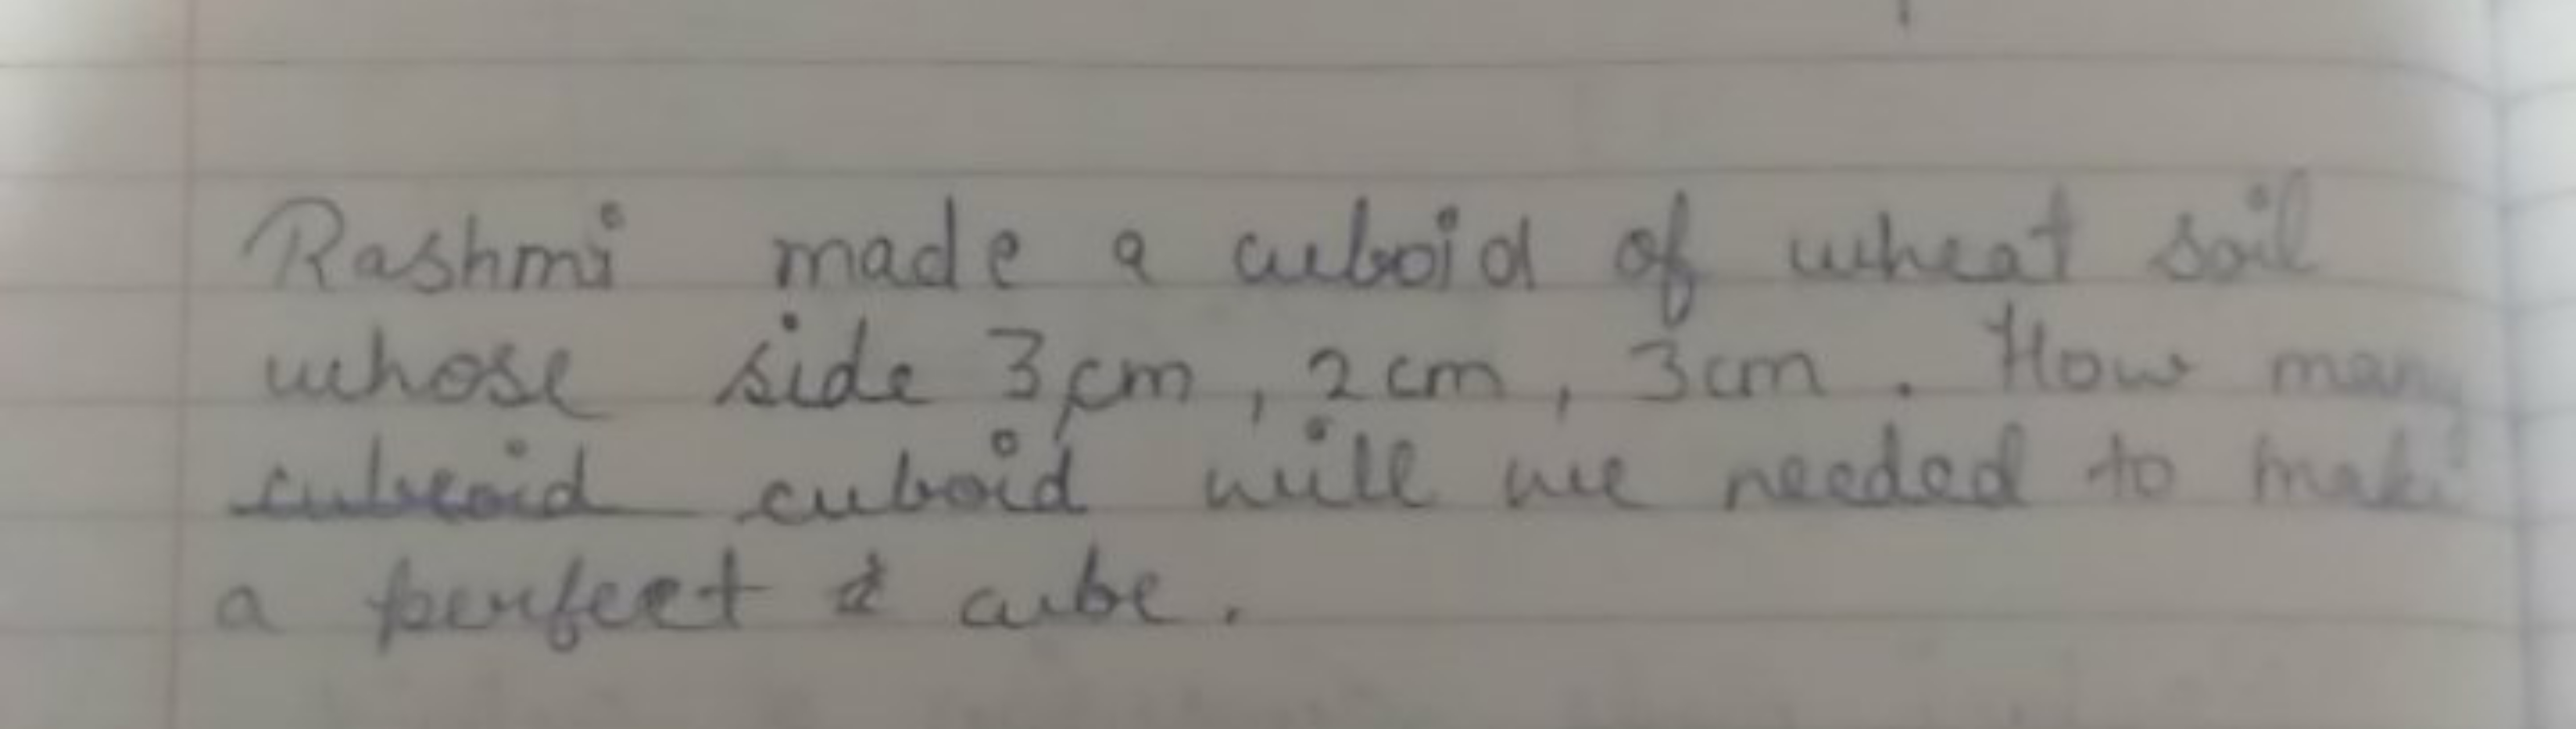 Rashmi made a cuboid of wheat soil
whose side 3cm, 2cm, 3cm. How many
cubeoid cuboid will we needed to make
a perfect cube.